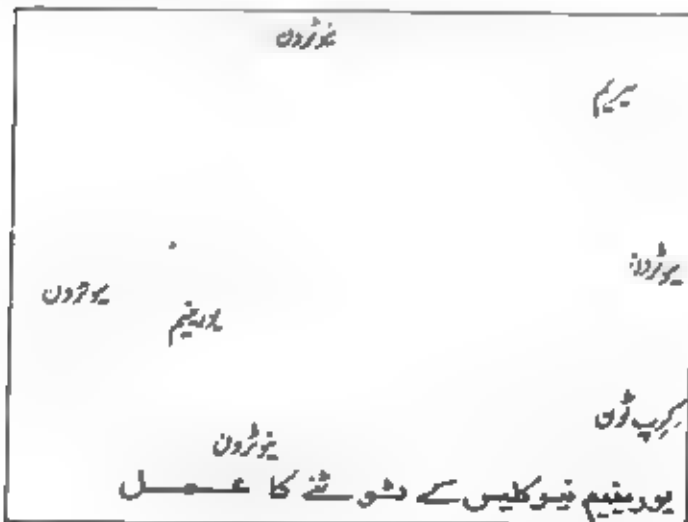 نیوٹرون
بیریم
نیوٹرون
نیوٹرون
یورینیم
کرپ ٹون
نیوٹرون
یورینیم نیوکلیس کے ٹوٹنے کا عمل